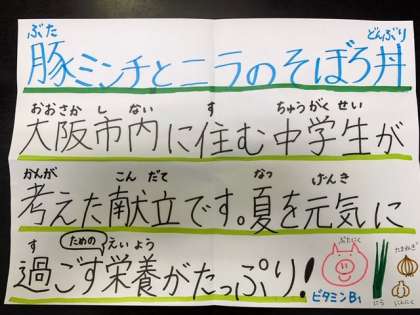 ぶた どんぶり
豚ミンチとニラのそぼろ丼
おおさか し ない す ちゅうがく せい
大阪市内に住む中学生が
かんが こん だて なつ げんき
考えた献立です。夏を元気に
す ための えい よう
過ごす栄養がたっぷり!
ぶたにく
ビタミンB1
にら
たまねぎ
にんにく